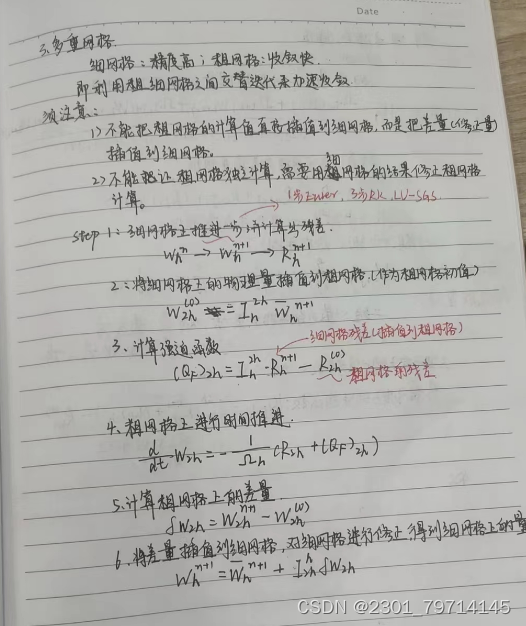 Date
3.多重网格.
细网格:精度高;粗网格:收敛快.
即利用粗细网格之间交替迭代来加速收敛.
须注意:
1)不能把粗网格的计算值直接插值到细网格,而是把差量(修正量)
插值到细网格。
2)不能让粗网格独立计算,需要用细网格的结果修正粗网格
计算。
1步Euler, 3步RK, LU-SGS
step 1:细网格上推进一步,计算与残差
Wₕⁿ → Wₕⁿ⁺¹ → Rₕⁿ⁺¹
2:将细网格上的物理量插值到粗网格.(作为粗网格初值)
W₂ₕ⁽⁰⁾ = Iₕ²ʰ W̄ₕⁿ⁺¹
细网格残差(插值到粗网格)
3、计算强迫函数
(Q_F)₂ₕ = Iₕ²ʰ·Rₕⁿ⁺¹ − R₂ₕ⁽⁰⁾
粗网格的残差
4.粗网格上进行时间推进.
d/dt W₂ₕ = − 1/Ω₂ₕ (R₂ₕ + (Q_F)₂ₕ)
5.计算粗网格上的差量
δW₂ₕ = W₂ₕⁿ⁺¹ − W₂ₕ⁽⁰⁾
6、将差量插值到细网格,对细网格进行修正,得到细网格上的量
Wₕⁿ⁺¹ = W̄ₕⁿ⁺¹ + I₂ₕʰ δW₂ₕ
CSDN @2301_79714145